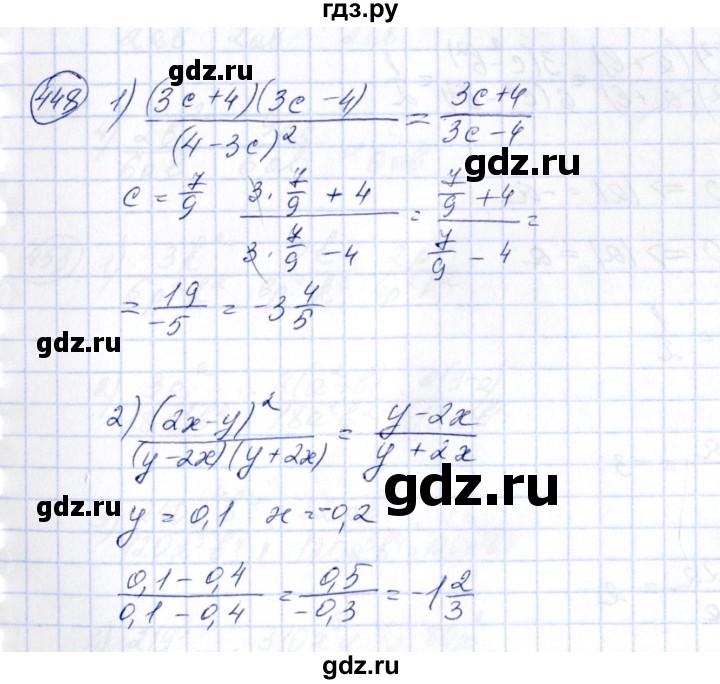 гдз.ру
448 1) (3c+4)(3c-4) / (4-3c)² = 3c+4 / 3c-4
gdz.ru
gdz.ru
c = 7/9   3·7/9 + 4 / 3·7/9 - 4 = 7/9 + 4 / 7/9 - 4 =
gdz.ru
= 19 / -5 = -3 4/5
gdz.ru
2) (2x-y)² / (y-2x)(y+2x) = y-2x / y+2x
gdz.ru
gdz.ru
y = 0,1   x = -0,2
0,1-0,4 / 0,1-0,4 = 0,5 / -0,3 = -1 2/3
gdz.ru
gdz.ru